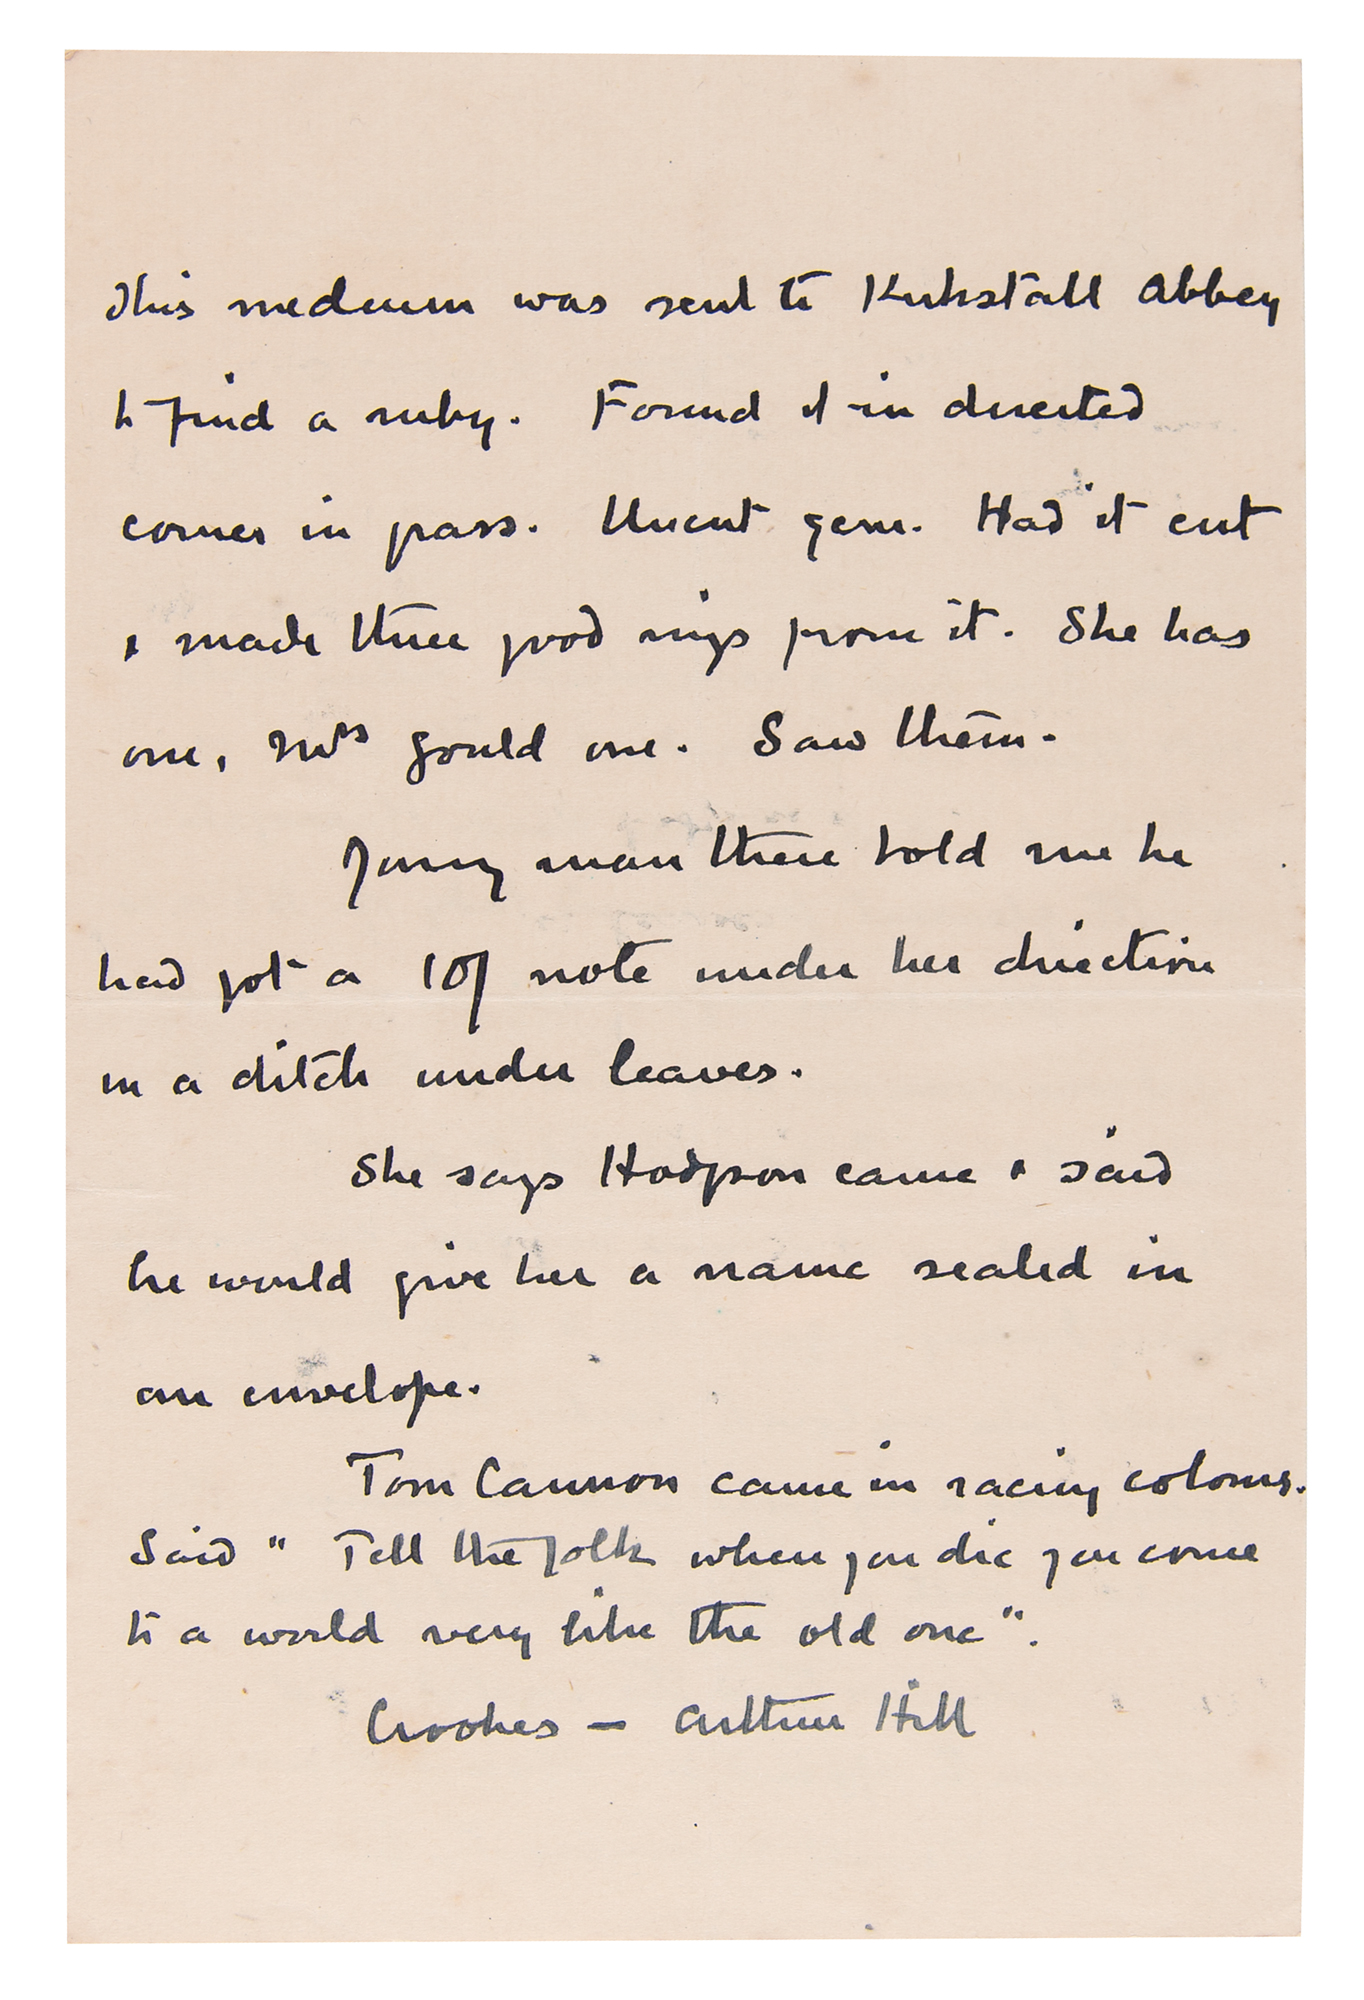 This medium was sent to Kirkstall Abbey
to find a ruby. Found it in directed
corner in grass. Uncut gem. Had it cut
& made three good rings from it. She has
one, Mrs Gould one. Saw them.
Young man there told me he
had got a 10/ note under her direction
in a ditch under leaves.
She says Hodgson came & said
he would give her a name sealed in
an envelope.
Tom Cannon came in racing colours.
Said " Tell the folk when you die you come
to a world very like the old one".
Crookes – Arthur Hill